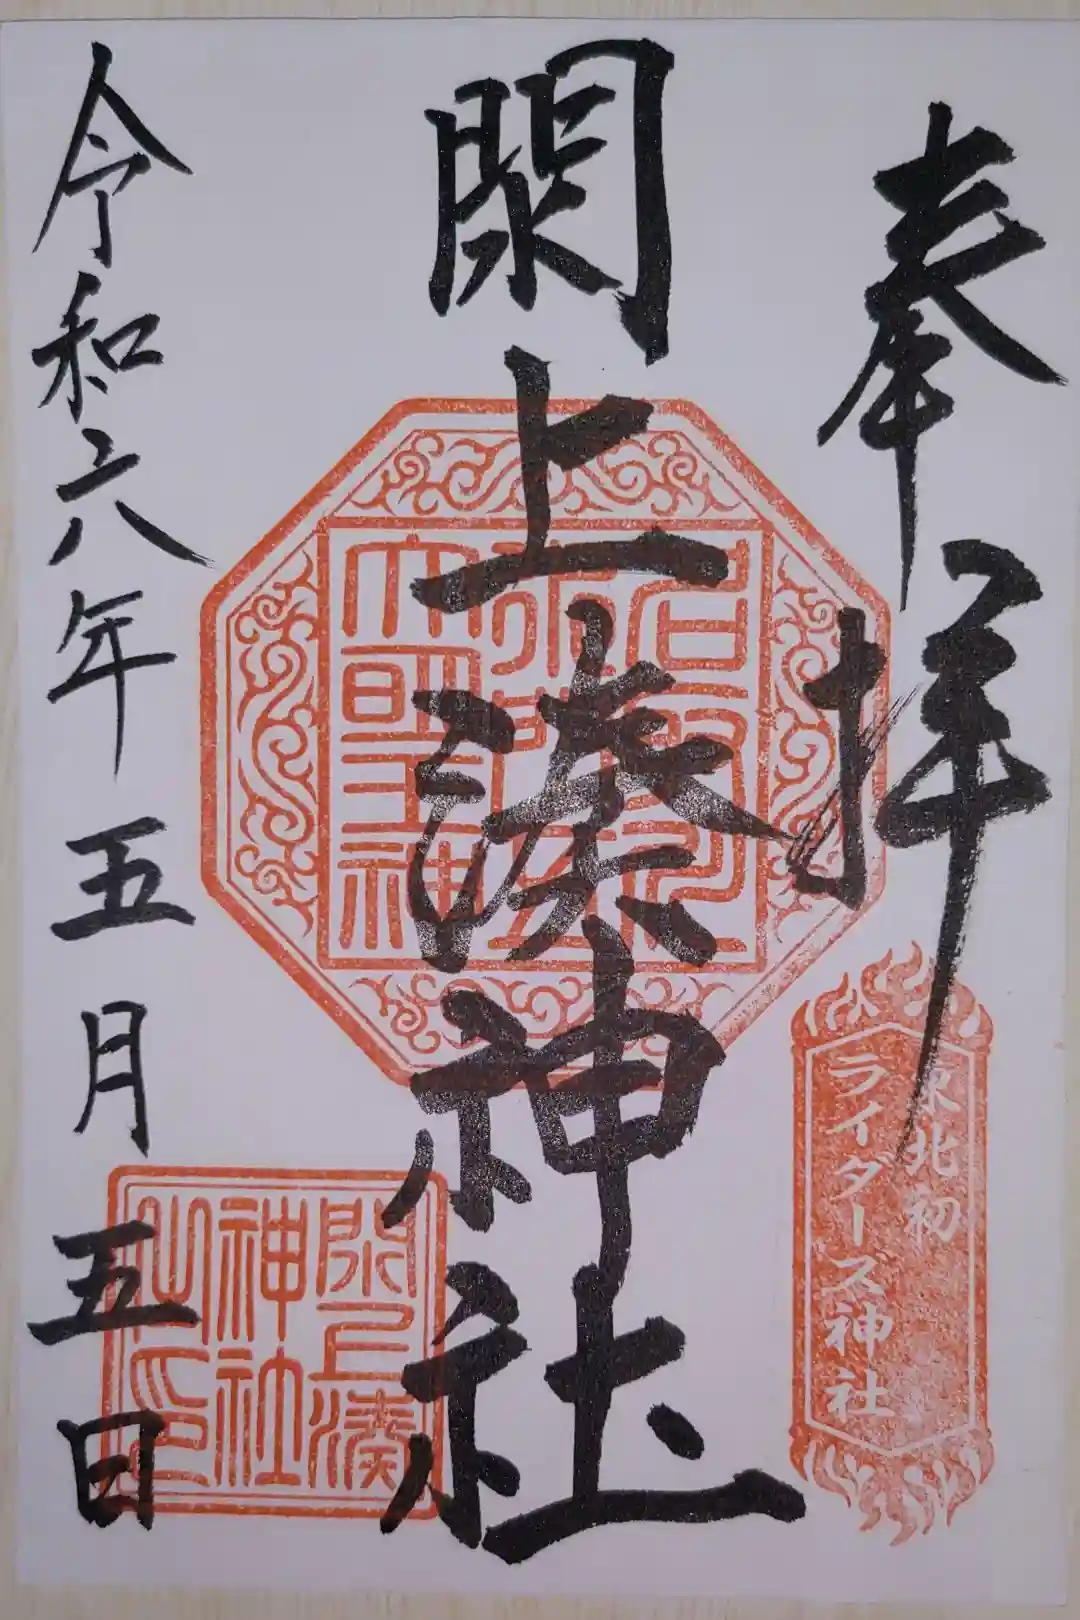 奉拝
閖上湊神社
令和六年五月五日
東北初
ライダース神社
閖上湊
神社
之印
大明王神